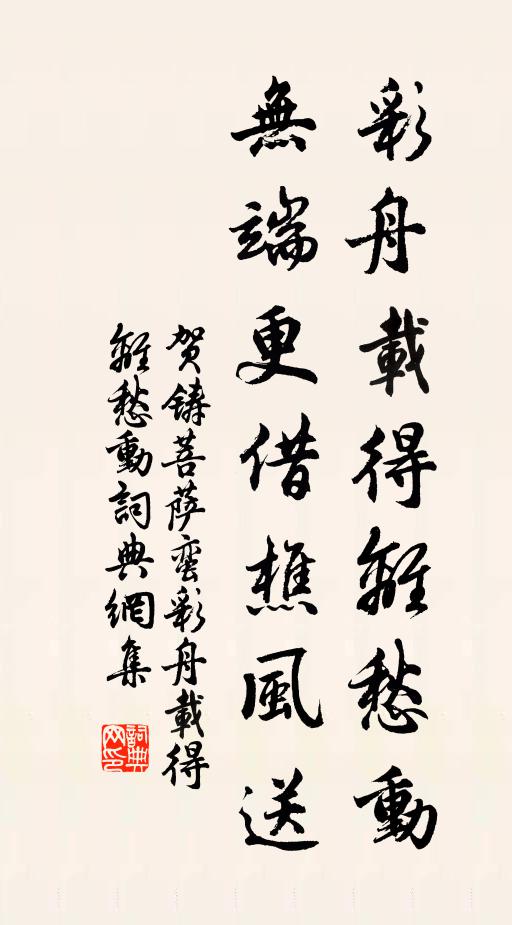 彩舟載得離愁動
無端更借樵風送
贺鑄菩薩蛮彩舟載得
離愁動詞典網集
詞典
网印